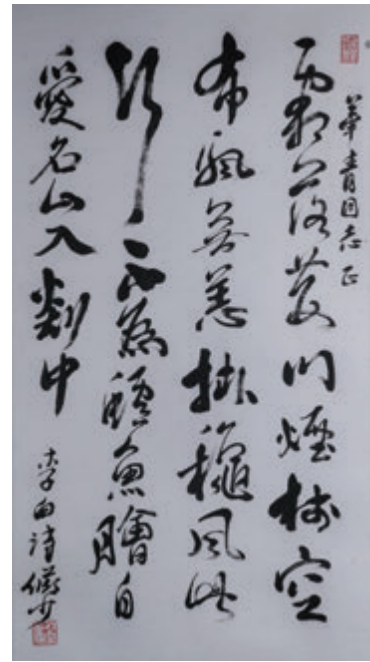 華青同志正
霜落荊門煙樹空
布帆無恙掛穐風此
行不為鱸魚膾自
愛名山入剡中
李白詩 儼少